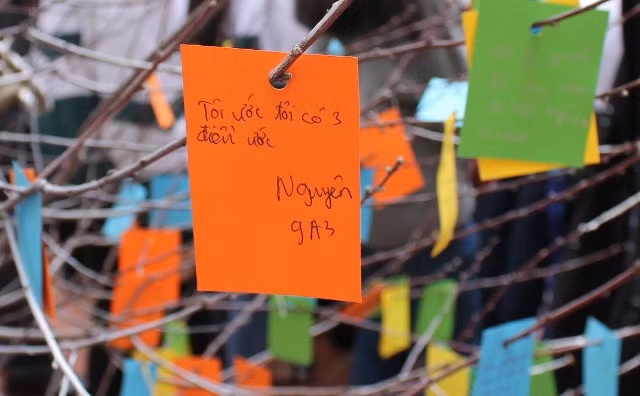 Tôi ước tôi có 3
điều ước
Nguyên
9A3